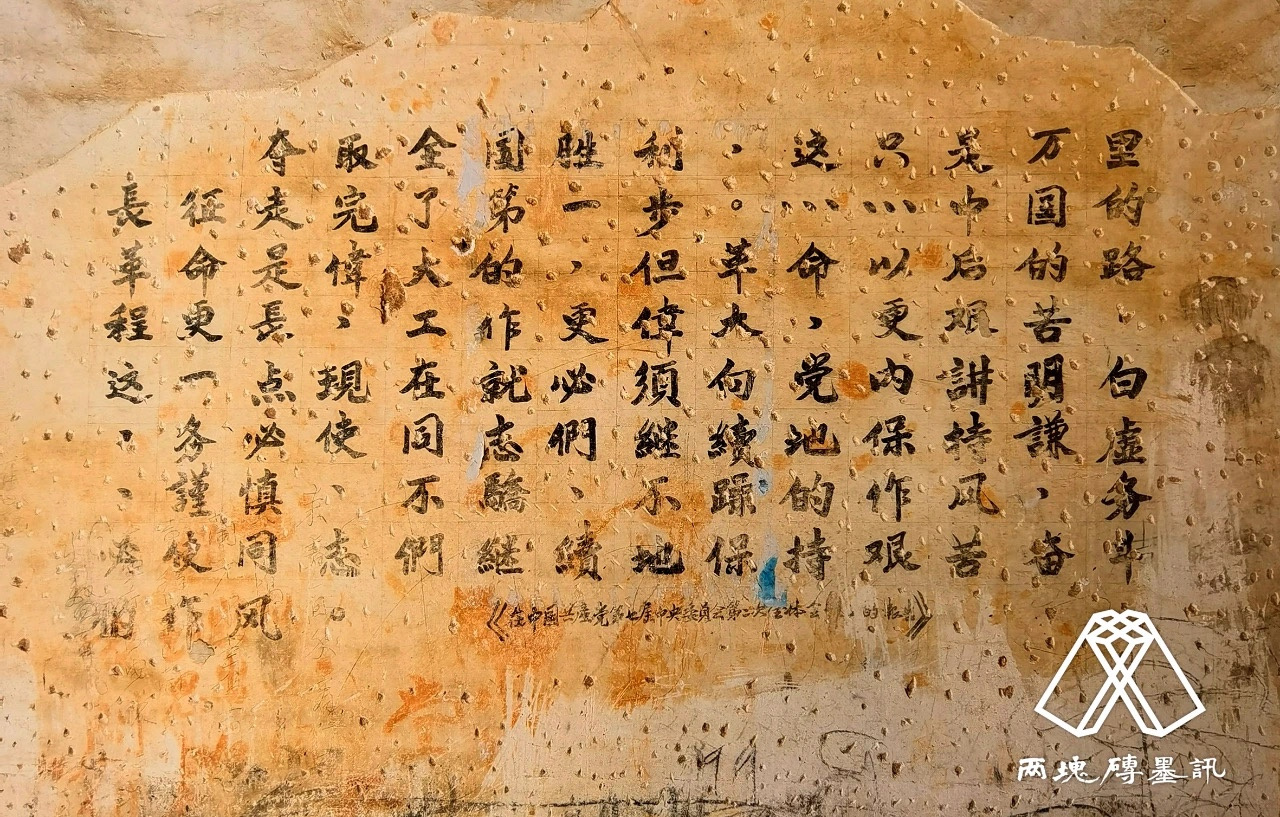 夺取全国胜利，这只是万里
長征走完了第一步。……中国的
革命是偉大的，但革命以后的路
程更長，工作更偉大，更艰苦。
这一点現在就必須向党内讲明白
，务必使同志們継續地保持謙虚
、謹慎、不驕、不躁的作风，务
必使同志們継續地保持艰苦奋斗
的作风。
《在中國共產党第七届中央委員会第二次全体会 的报告》
两塊磚墨訊